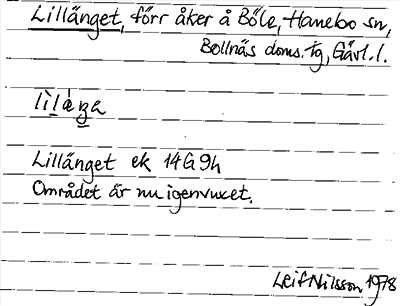 Lillänget, förr åker å Böle, Hanebo sn,
Bollnäs doms. tg, Gävl. l.
lìlàŋa
Lillänget ek 14G 9h
Området är nu igenvuxet.
Leif Nilsson 1978